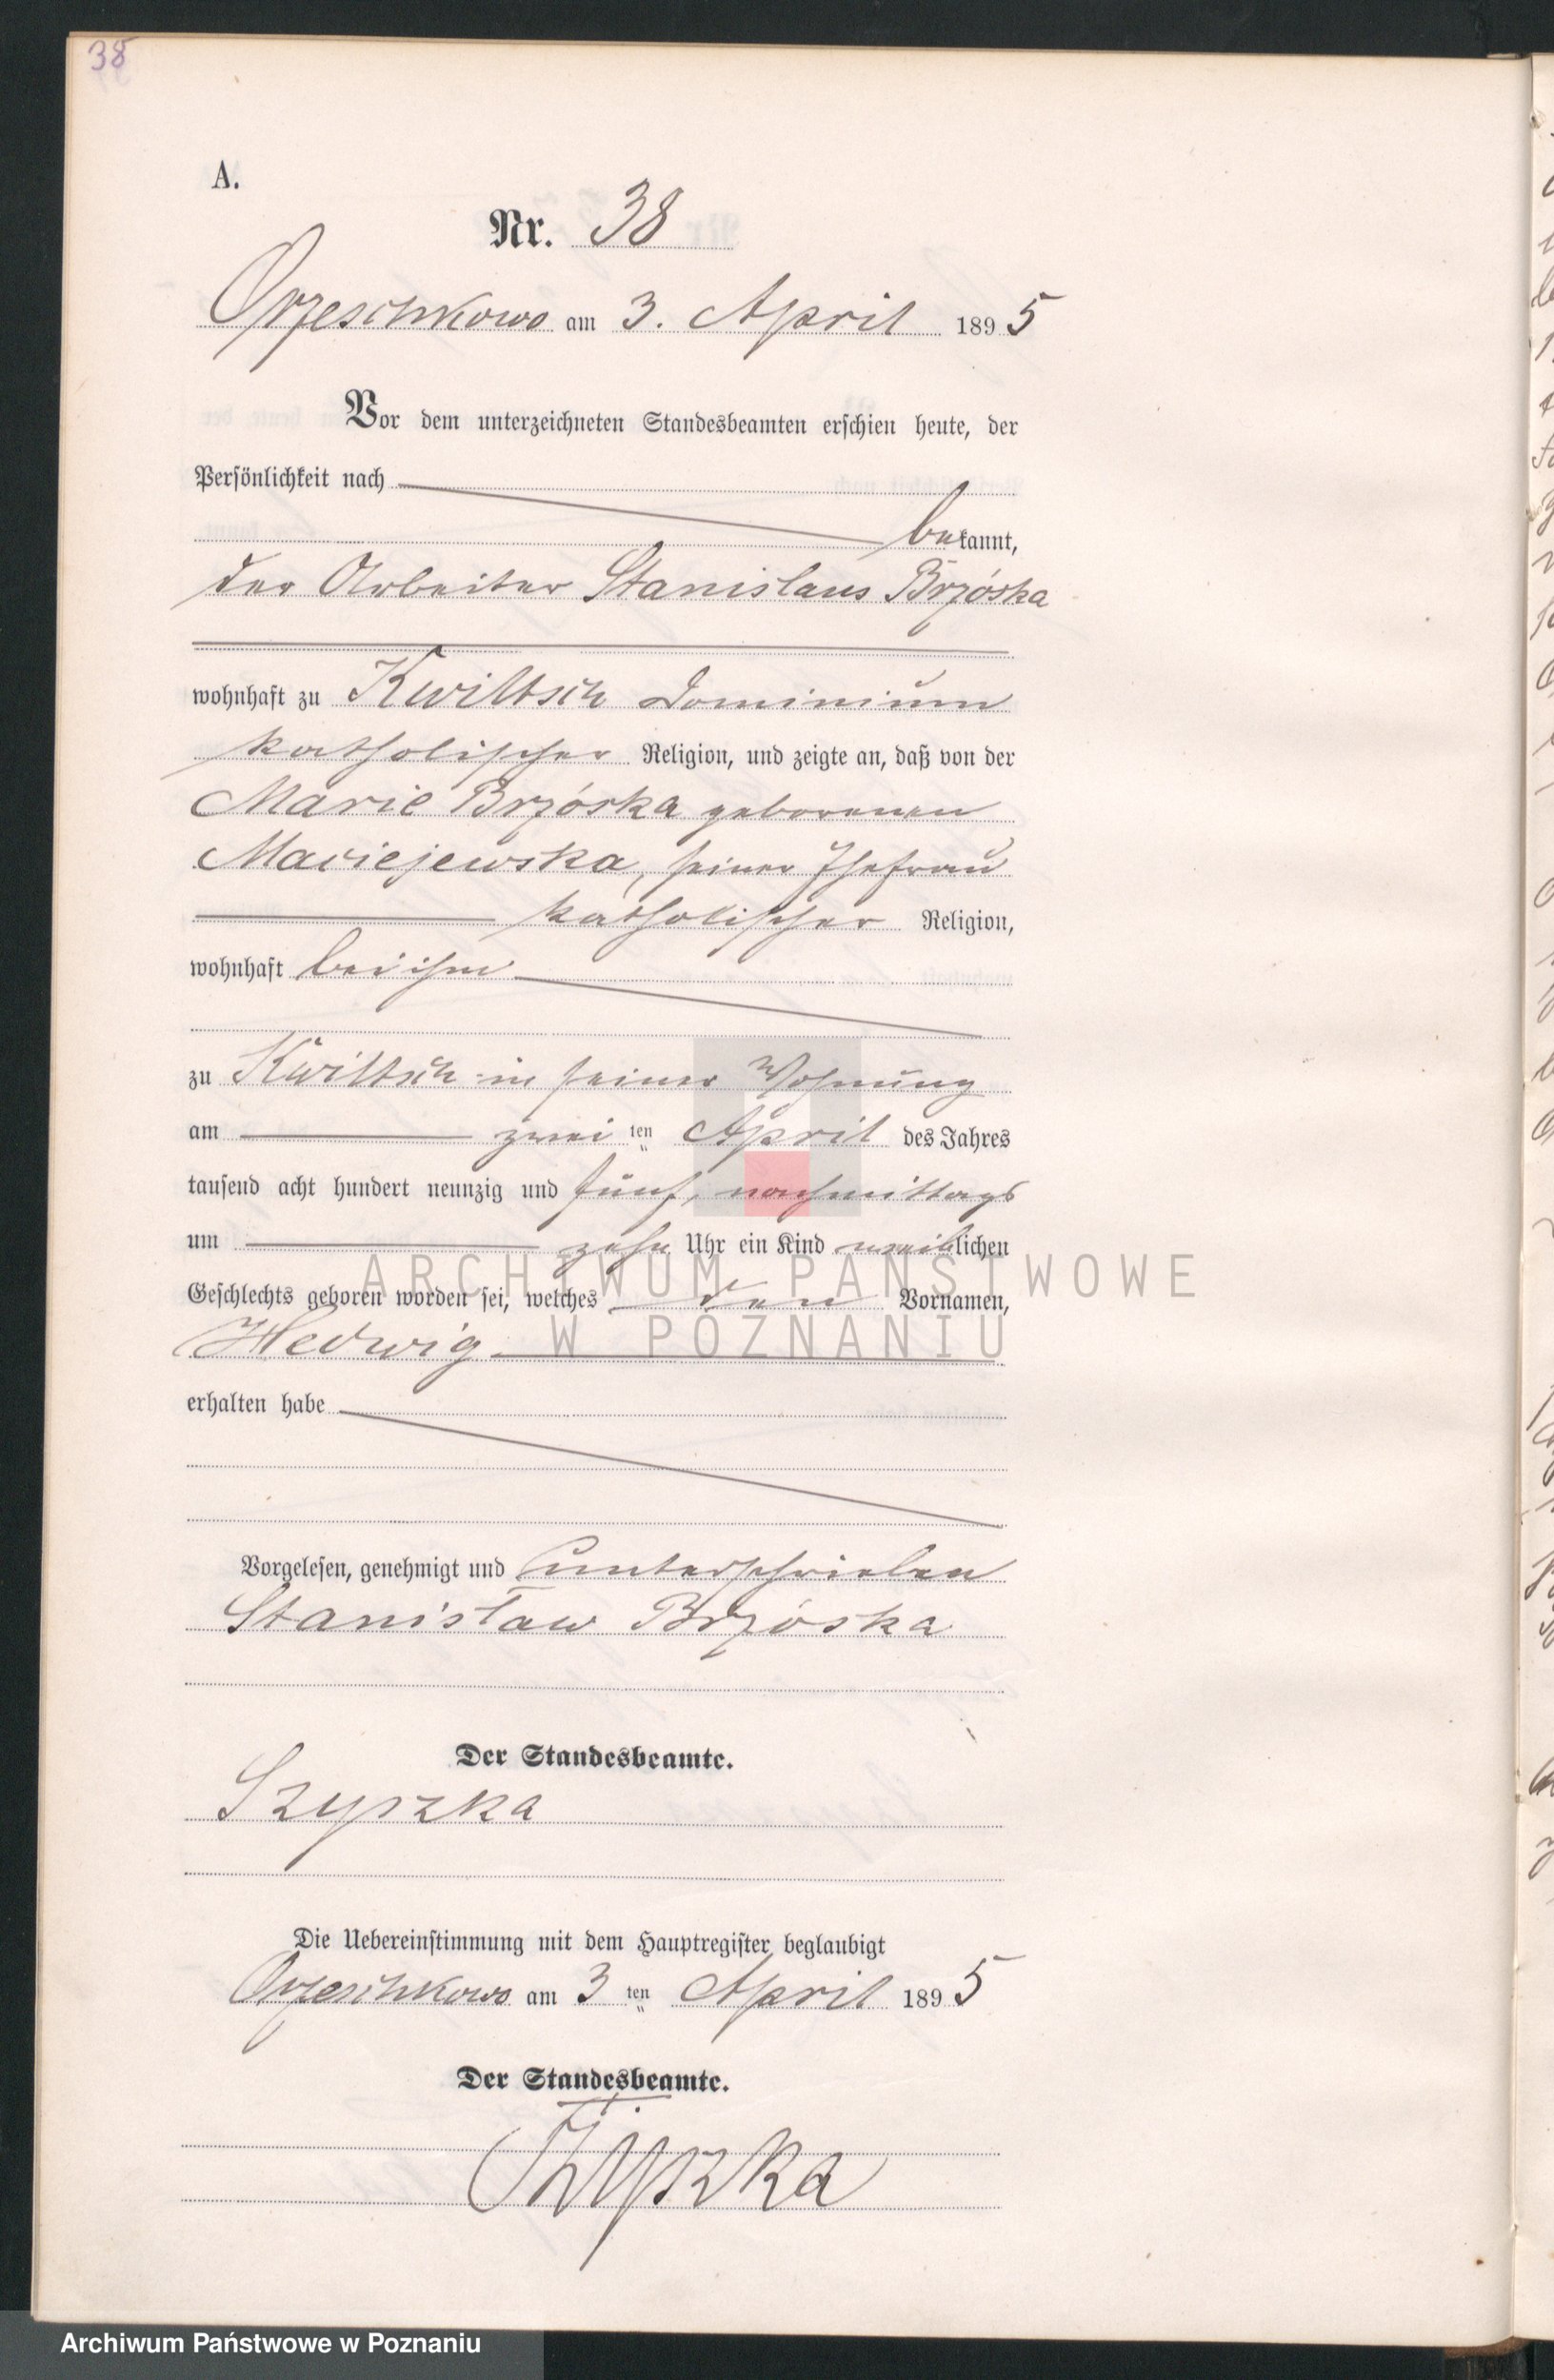 38
A.
Nr. 38
Orzeschkowo am 3. April 1895
Vor dem unterzeichneten Standesbeamten erschien heute, der
Persönlichkeit nach
bekannt,
der Arbeiter Stanislaus Brzóska
wohnhaft zu Kwiltsch Dominium
katholischer Religion, und zeigte an, daß von der
Marie Brzóska geborenen
Maciejewska, seiner Ehefrau
katholischer Religion,
wohnhaft bei ihm
zu Kwiltsch in seiner Wohnung
am zweiten April des Jahres
tausend acht hundert neunzig und fünf, nachmittags
um zehn Uhr ein Kind weiblichen
Geschlechts geboren worden sei, welches den Vornamen,
Hedwig
erhalten habe
Vorgelesen, genehmigt und unterschrieben
Stanisław Brzóska
Der Standesbeamte.
Szyszka
Die Uebereinstimmung mit dem Hauptregister beglaubigt
Orzeschkowo am 3 ten April 1895
Der Standesbeamte.
Szyszka
ARCHIWUM PAŃSTWOWE
W POZNANIU
Archiwum Państwowe w Poznaniu